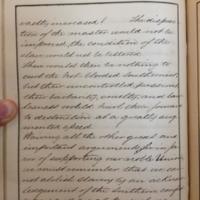 vastly increased! The disposi-
tion of the master would not be
improved, the condition of the
slave would not be bettered.
There would then be nothing to
curb the hot-blooded Southernist,
but their uncontrolled passions,
their barbarity, cruelty, and law-
lessness would hurl them forward
to destruction at a greatly aug-
mented speed.
Waiving all the other great and
important arguments in fa-
vor of supporting our noble Union,
we must remember that we can
not abolish slavery by our acknow-
ledgement of the Southern conf